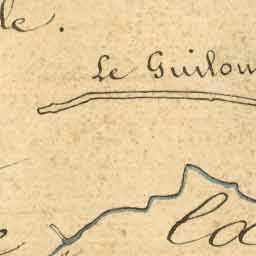 le.
Le Guilou
e la